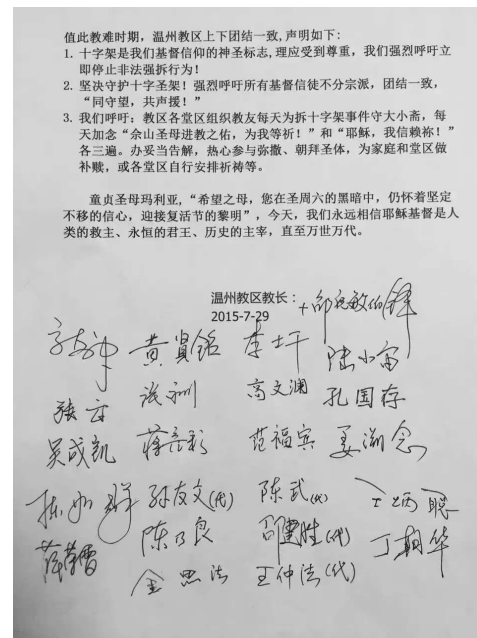 值此教难时期，温州教区上下团结一致，声明如下：
1. 十字架是我们基督信仰的神圣标志，理应受到尊重，我们强烈呼吁立
即停止非法强拆行为！
2. 坚决守护十字圣架！强烈呼吁所有基督信徒不分宗派，团结一致，
“同守望，共声援！”
3. 我们呼吁：教区各堂区组织教友每天为拆十字架事件守大小斋，每
天加念“佘山圣母进教之佑，为我等祈！”和“耶稣，我信赖祢！”
各三遍。办妥当告解，热心参与弥撒、朝拜圣体，为家庭和堂区做
补赎，或各堂区自行安排祈祷等。
童贞圣母玛利亚，“希望之母，您在圣周六的黑暗中，仍怀着坚定
不移的信心，迎接复活节的黎明”，今天，我们永远相信耶稣基督是人
类的救主、永恒的君王、历史的主宰，直至万世万代。
温州教区教长：
2015-7-29
黄贤铭 李坪 陆小雷
高文澜 孔国存
张云
吴成凯 范福宾 姜溯念
孙友文(代) 陈武(代) 聪
陈乃良 邵建胜(代) 丁朝华
金思法 王仲法(代)